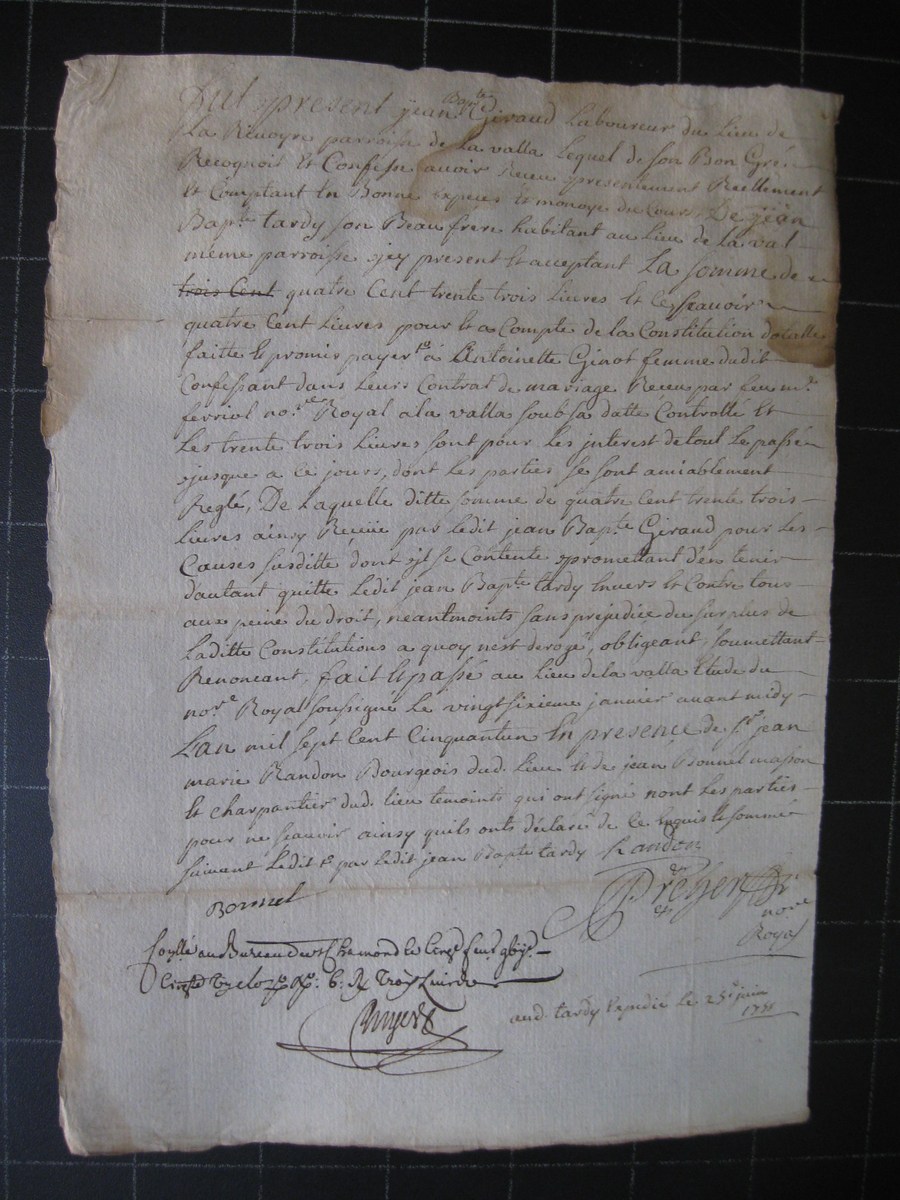 Fut present jean Bapte Giraud Laboureur du Lieu de
La Rivoyre parroisse de la valla Lequel de son Bon Gré
Recognoit Et Confesse avoir Receu presentement Reellement
Et Comptant En Bonne Especes Et monoye du Cours De jëan
Bapte tardy son Beaufrere habitant au Lieu de la val
meme parroisse jcy present Et acceptant La somme de
trois Cent quatre Cent trente trois Livres Et Ce sçeavoir
quatre Cent Livres pour Et a Compte de la Constitution dotalle
faitte Et promis payer à Antoinette Ginot femme dudit
Confessant dans Leurs Contrat de mariage Receu par feu me
ferriol nore Royal a la valla soub sa datte Controllé Et
Les trente trois Livres sont pour Les jnterest de tout Le passé
jusque a Ce jours, dont Les parties se sont amiablement
Reglé, De Laquelle ditte somme de quatre Cent trente trois
Livres ainsy Reçüe par Ledit jean Bapte Giraud pour Les
Causes susditte dont jl se Contente promettant d'en tenir
d'autant quitte Ledit jean Bapte tardy Envers Et Contre tous
aux peine du droit, neantmoints sans prejudice du surplus de
Laditte Constitutions a quoy n'est derogé, obligeant, soumettant
Renonceant, fait Et passé au Lieu de la valla Etude du
nore Royal soussigné Le vingtsixieme janvier avant midy
L'an mil sept Cent Cinquantun En presence de sr jean
marie Randon Bourgeois dud. Lieu Et de jean Bonnel masson
Et charpantier dud. lieu temoints qui ont signé non Les parties
pour ne sçavoir ainsy quils onts déclaré de Ce Enquis Et sommé
suivant Ledit par Ledit jean Bapte tardy Randon
Bonnel
nore
Royal
au Bureau de St Chamond Le
aud. tardy Expedié Le 25e juin
1751